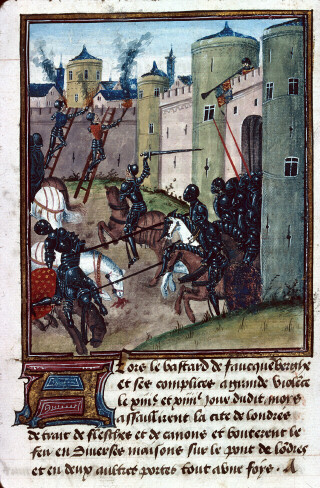 Alors le bastard de faucqueberghe
et ses complices a grande violēce
le et jour dudit moys
assaillirent la cite de londres
de trait de flesches et de canons et bouterent le
feu en diverses maisons sur le pont de lōdres
et en deux aultres portes tout a une foys . A